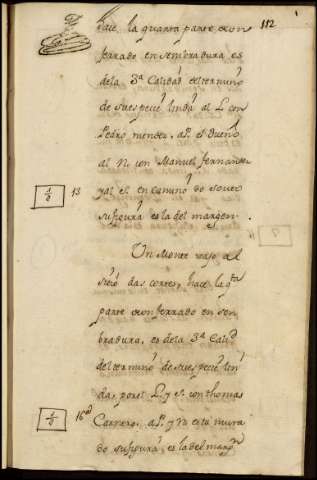 112
hace la quarta parte de un
ferrado en sembradura es
dela 3ª Calidad del termino
de su especie linda al L con
Pedro mendez, al P. el Dueño
al N. con Manuel fernandez
13 y al S. en camino do sover
su figura es la del margen.
Un Monte raso al
sitio das cortes, hace la qta
parte de un ferrado en sen
bradura, es dela 3ª Calid
del termino de su especie lin
da, por el L y S. con thomas
16
Carrero, al P. y N. esta mura
do su figura es la del margn